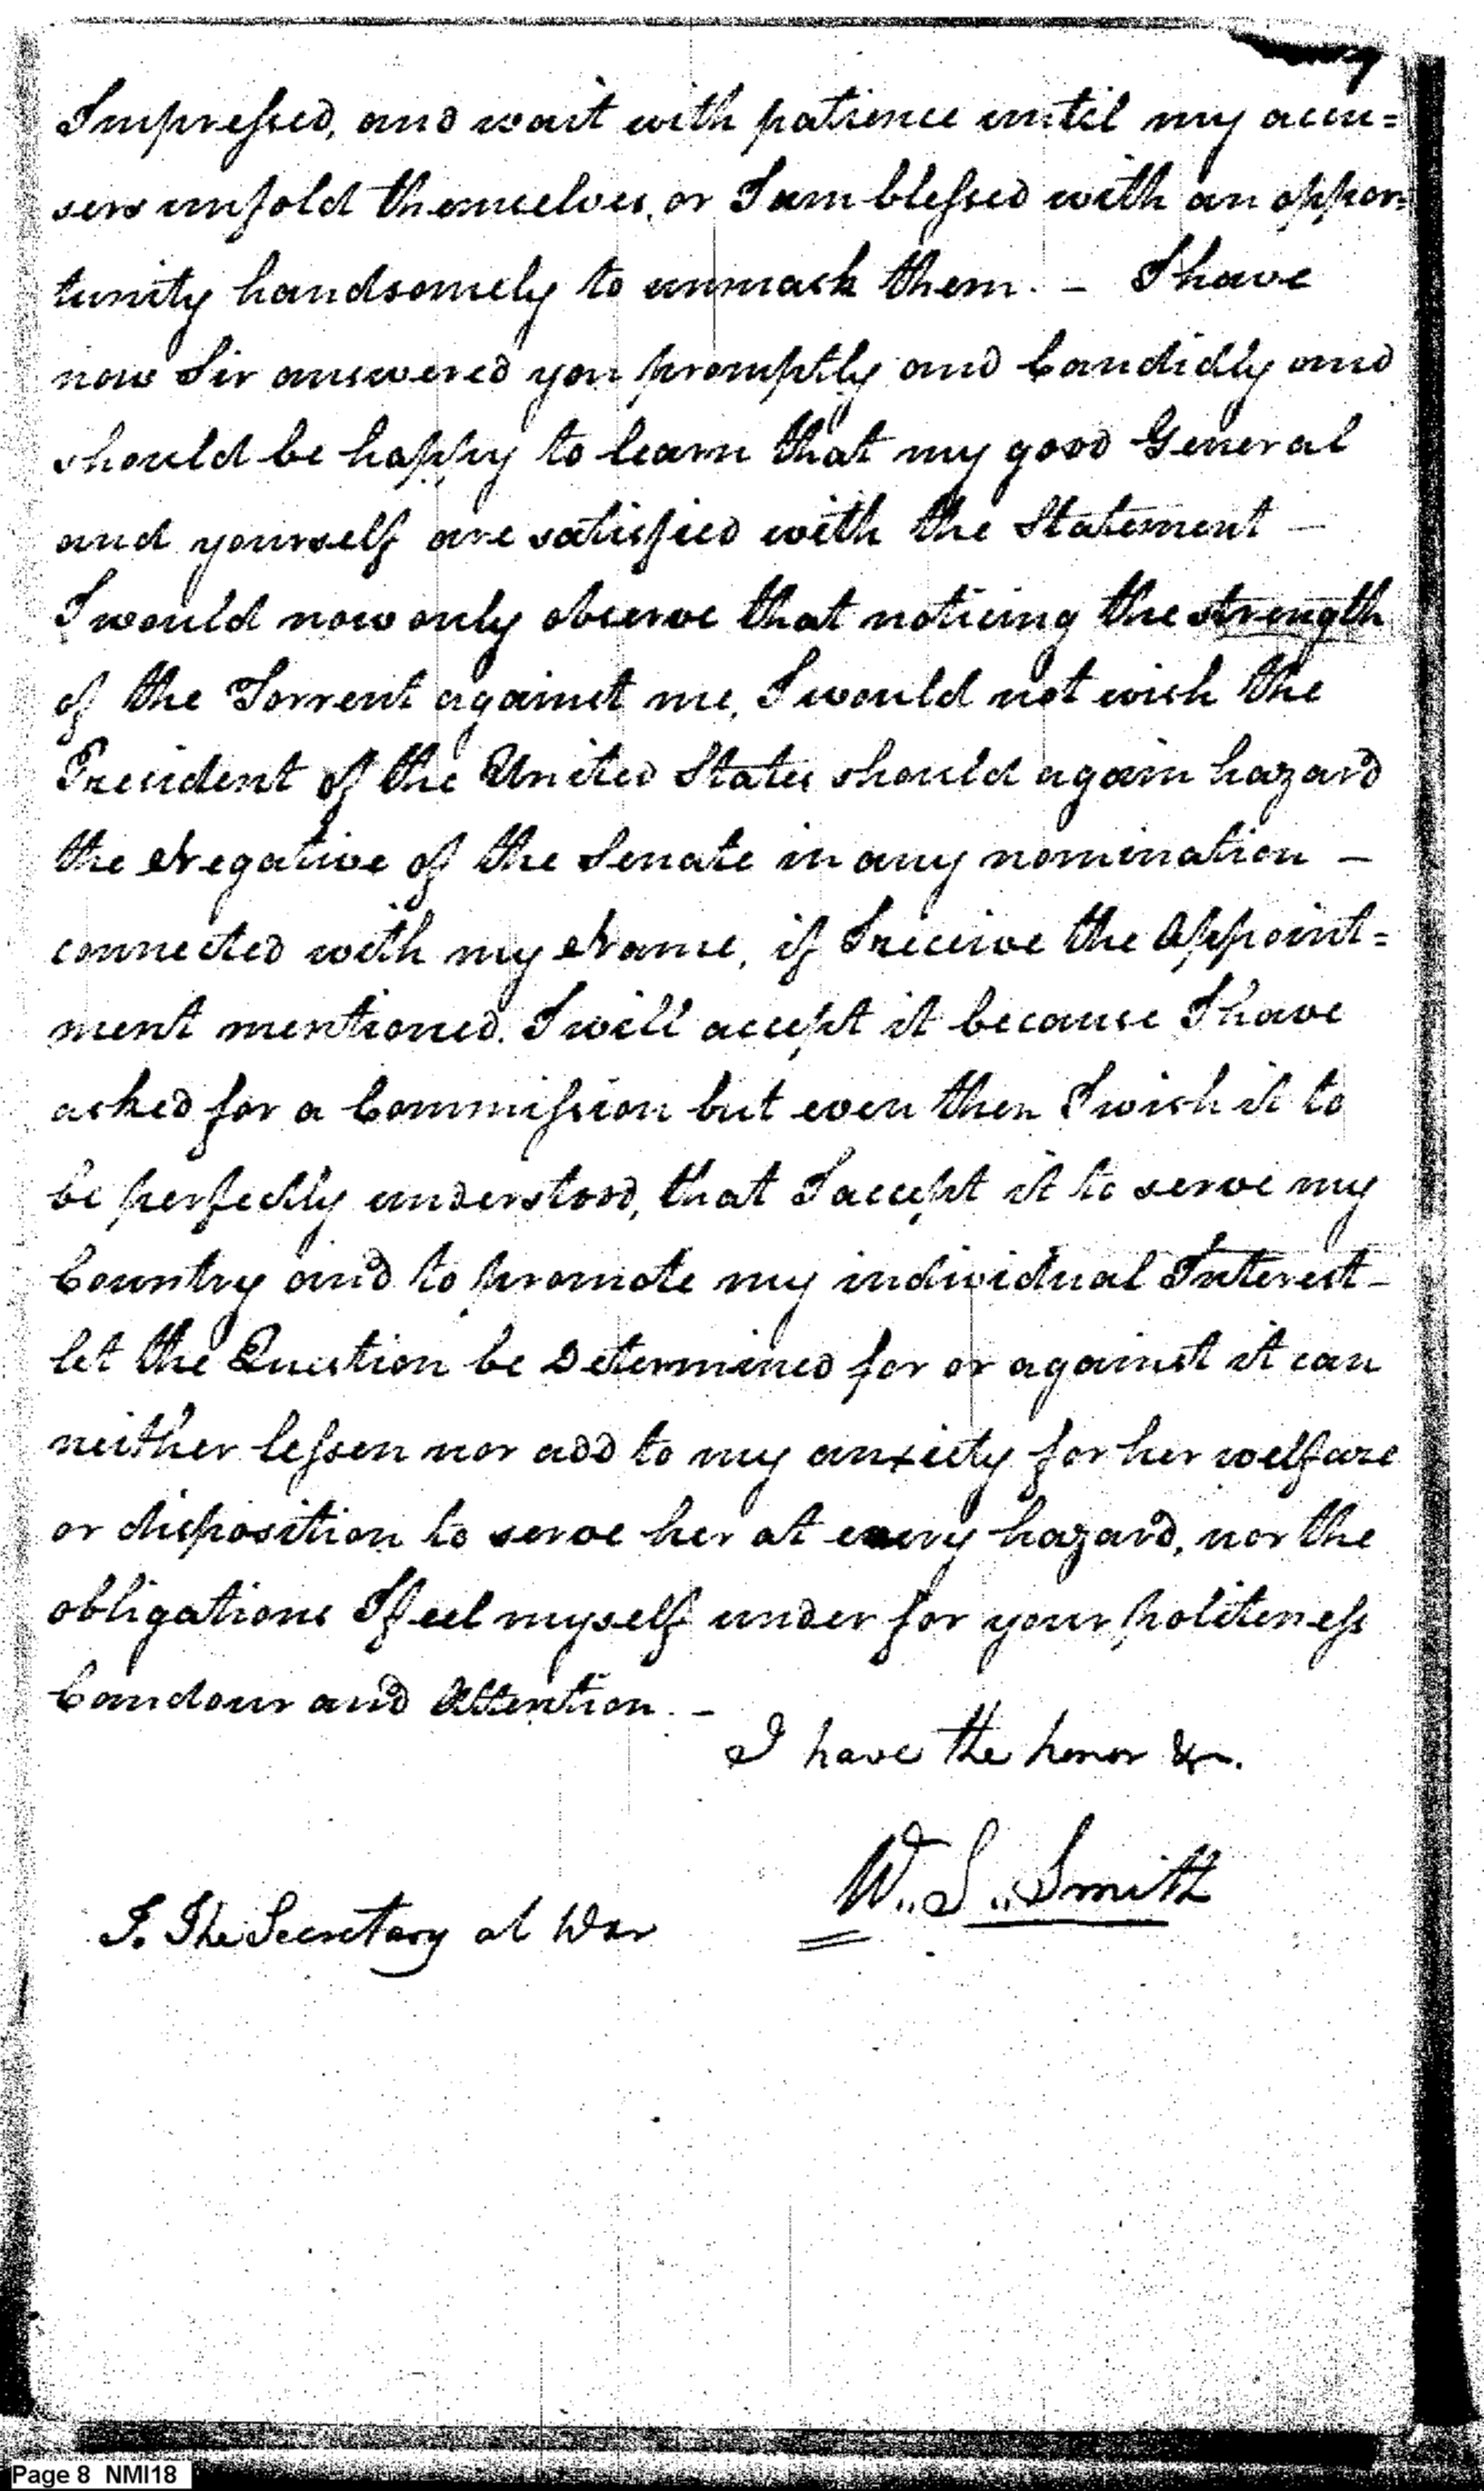 7
Impressed, and wait with patience until my accu=
sers unfold themselves, or I am blessed with an oppor=
tunity handsomely to unmask them. – I have
now Sir answered you promptly and Candidly and
should be happy to learn that my good General
and yourself are satisfied with the Statement –
I would now only observe that noticing the strength
of the Torrent against me, I would not wish the
President of the United States should again hazard
the Negative of the Senate in any nomination –
connected with my Name, if I receive the Appoint=
ment mentioned. I will accept it because I have
asked for a Commission but even then I wish it to
be perfectly understood, that I accept it to serve my
Country and to promote my individual Interest –
let the Question be Determined for or against it can
neither lessen nor add to my anxiety for her welfare
or disposition to serve her at every hazard, nor the
obligations I feel myself under for your politeness
Candour and Attention. –
I have the honor &c.
W.. S.. Smith
To The Secretary at War
Page 8 NMI18